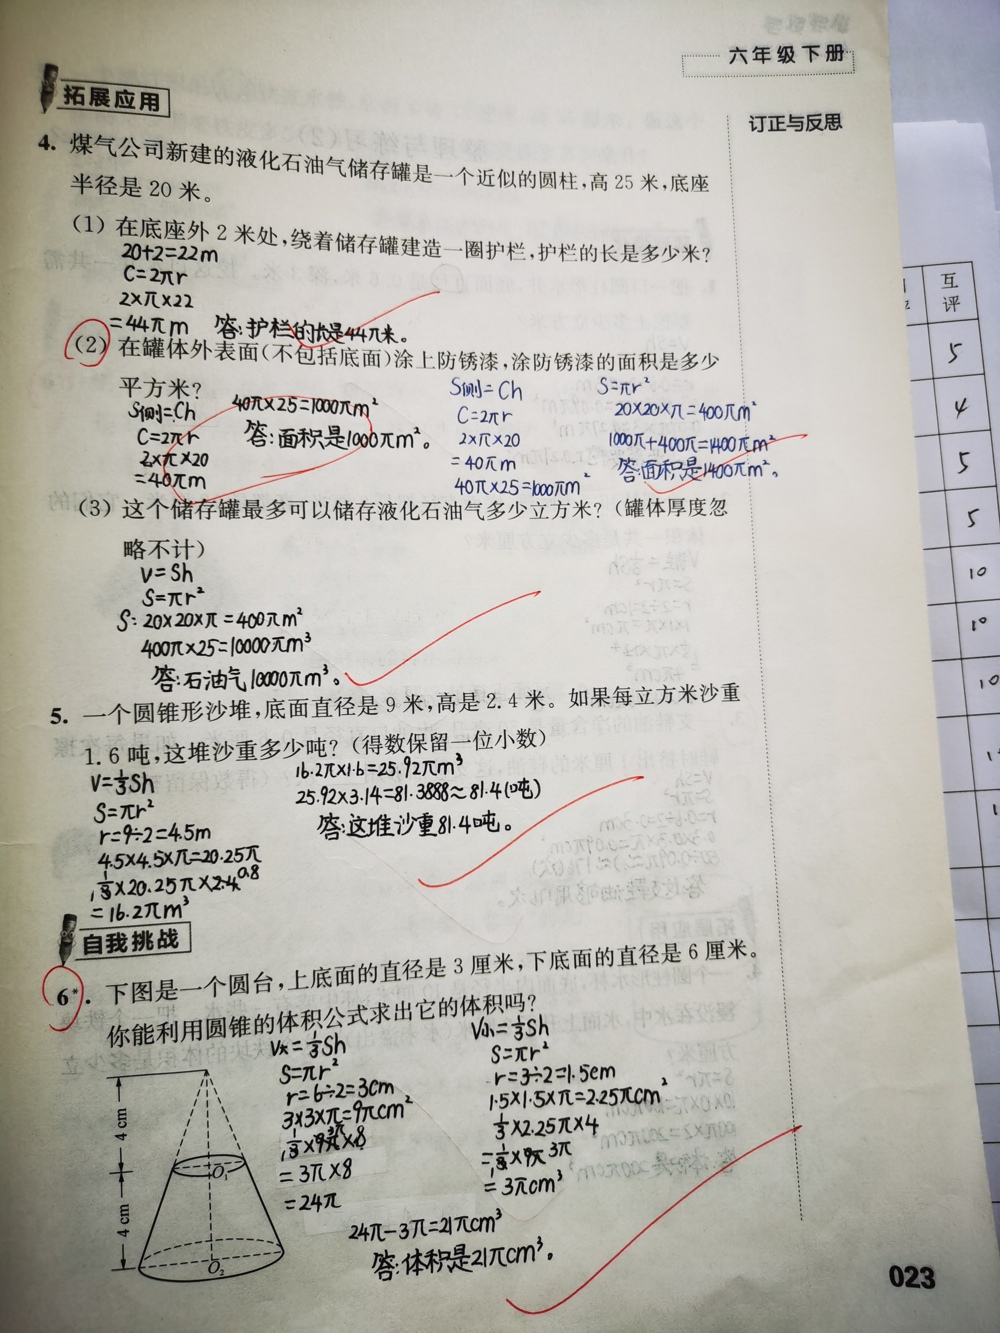 六年级下册
拓展应用
订正与反思
4. 煤气公司新建的液化石油气储存罐是一个近似的圆柱,高25米,底座
半径是20米。
(1) 在底座外2米处,绕着储存罐建造一圈护栏,护栏的长是多少米?
20+2=22m
C=2πr
2×π×22
=44πm 答:护栏的长是44π米。
(2) 在罐体外表面(不包括底面)涂上防锈漆,涂防锈漆的面积是多少
平方米?
S侧=Ch
C=2πr
2×π×20
=40πm
40π×25=1000πm²
答:面积是1000πm²。
S侧=Ch
C=2πr
2×π×20
=40πm
40π×25=1000πm²
S=πr²
20×20×π=400πm²
1000π+400π=1400πm²
答:面积是1400πm²。
(3) 这个储存罐最多可以储存液化石油气多少立方米?(罐体厚度忽
略不计)
V=Sh
S=πr²
S:20×20×π=400πm²
400π×25=10000πm³
答:石油气10000πm³。
5. 一个圆锥形沙堆,底面直径是9米,高是2.4米。如果每立方米沙重
1.6吨,这堆沙重多少吨?(得数保留一位小数)
V=⅓Sh
S=πr²
r=9÷2=4.5m
4.5×4.5×π=20.25π
⅓×20.25π×2.4 0.8
=16.2πm³
16.2π×1.6=25.92πm³
25.92×3.14=81.3888≈81.4(吨)
答:这堆沙重81.4吨。
自我挑战
6*. 下图是一个圆台,上底面的直径是3厘米,下底面的直径是6厘米。
你能利用圆锥的体积公式求出它的体积吗?
V大=⅓Sh
S=πr²
r=6÷2=3cm
3×3×π=9πcm²
⅓×9π×8 3π
=3π×8
=24π
V小=⅓Sh
S=πr²
r=3÷2=1.5cm
1.5×1.5×π=2.25πcm²
⅓×2.25π×4
=⅓×9π 3π
=3πcm³
24π-3π=21πcm³
答:体积是21πcm³。
4 cm
O₁
4 cm
O₂
023
互
评
5
4
5
5
10
10
10